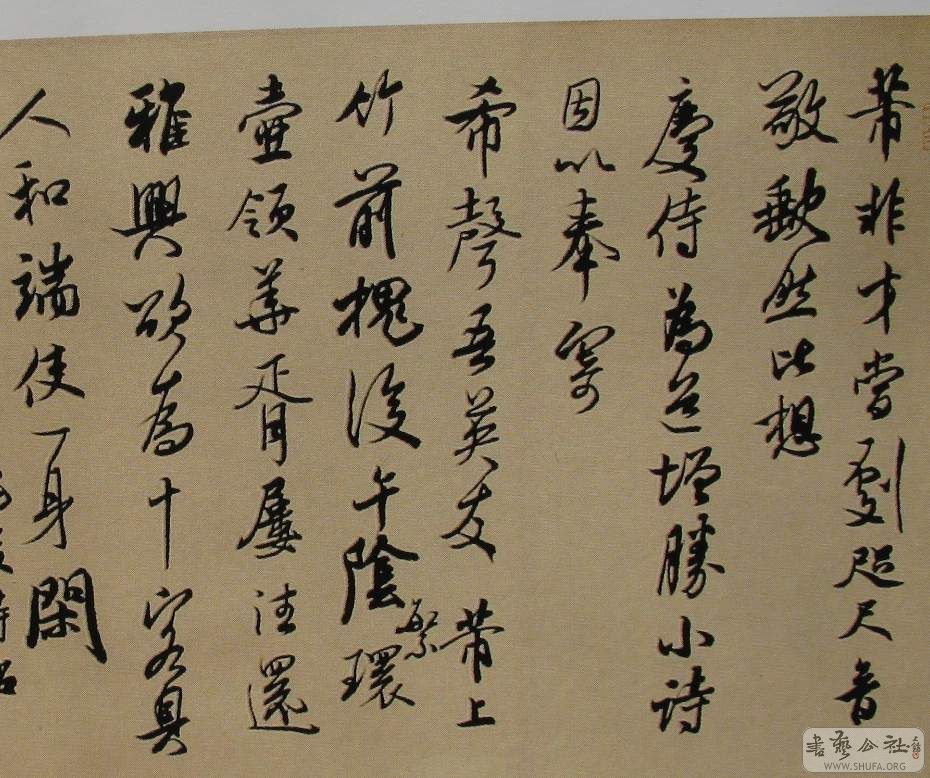 芾非才當劇咫尺音
敬缺然比想
慶侍為道增勝小詩
因以奉寄
希聲吾英友 芾上
竹前槐後午陰繁環
壺領華胥屢往還
雅興欲為十客具
人和端使一身閑
書藝公社
WWW.SHUFA.ORG